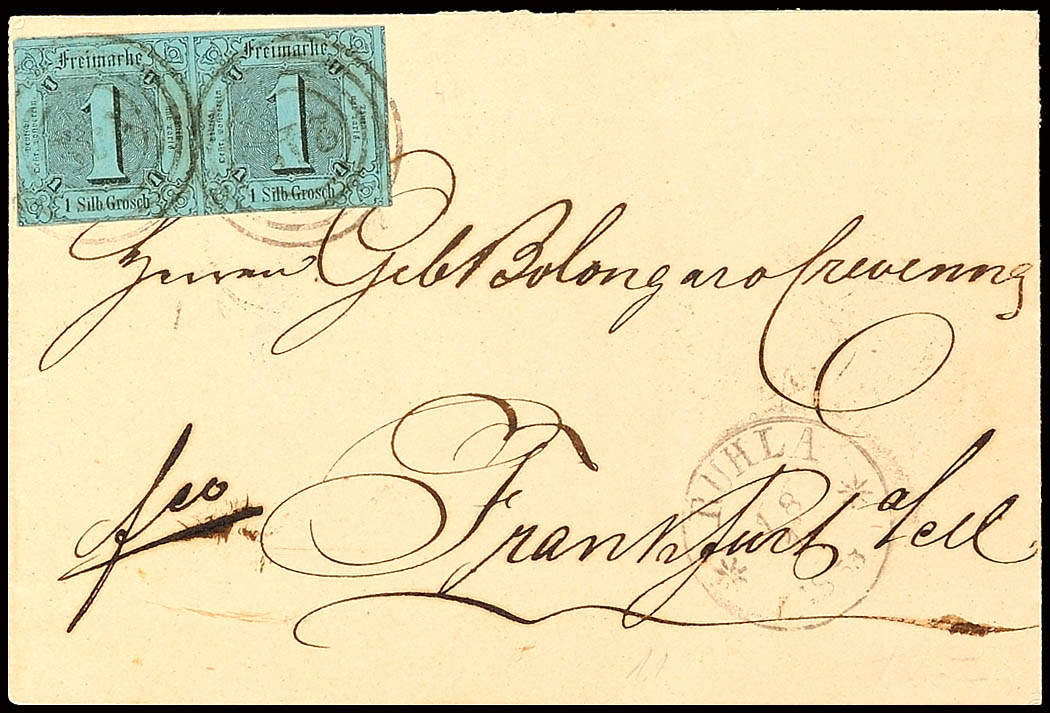 Freimarke Freimarke
1 1
1 Silb.Grosch 1 Silb.Grosch
Herren Gebr Bolongaro Crevenna
fco Frankfurt a/M
RUHLA